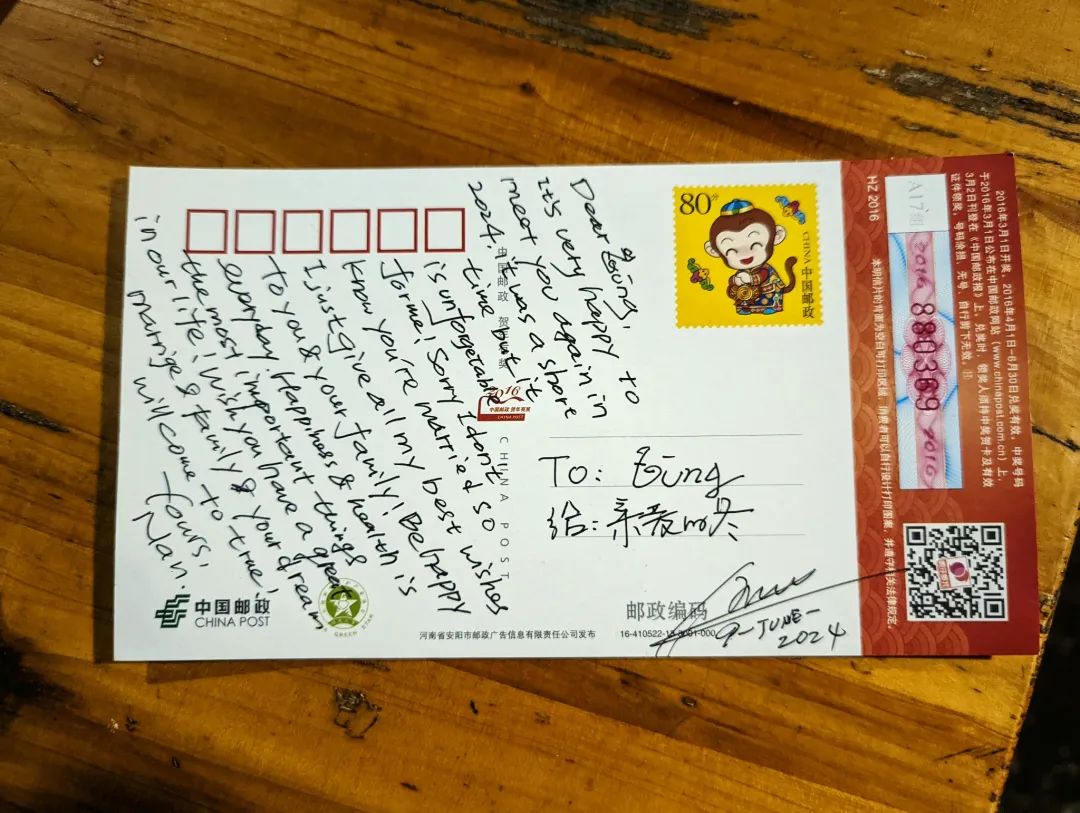 Dear
It's very happy to
meet you again in
2024. it was a shore
time but it
is unforgetable
for me! Sorry I don't
know you're married so
I just give all my best wishes
To you & your family! Be happy
everyday. Happiness & health is
the most important things
in our life! wish you have a great
marrige & family & your dream
will come to true!
Yours,
Nan.
80分
CHINA 中国邮政
TO:
给: 亲爱的冬
9-JUNE-
2024
邮政编码
中国邮政 贺年有奖
2016
中国邮政 贺年有奖
CHINA POST
CHINA POST
中国邮政
CHINA POST
河南省安阳市邮政广告信息有限责任公司发布
16-410522-13-0001-000
2016年3月1日开奖，2016年4月1日-6月30日兑奖有效，中奖号码
于2016年3月1日公布在中国邮政网站（www.chinapost.com.cn）上，
3月2日刊登在《中国邮政报》上，兑奖时，领奖人须持中奖贺卡及有效
证件领奖，号码涂损、无号、自行剪下无效。
A17组
2016 880369 2016
HZ 2016
本明信片的背面为空白可打印区域，消费者可以自行设计打印图案，并遵守相关法律规定。